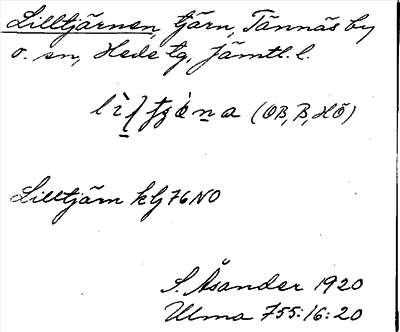 Lilltjärnen, tjärn, Tännäs by
o. sn, Hede tg, Jämtl. l.
(OB, B, HÖ)
Lilltjärn kbl 76 NO
S. Åsander 1920
Ulma 755:16:20